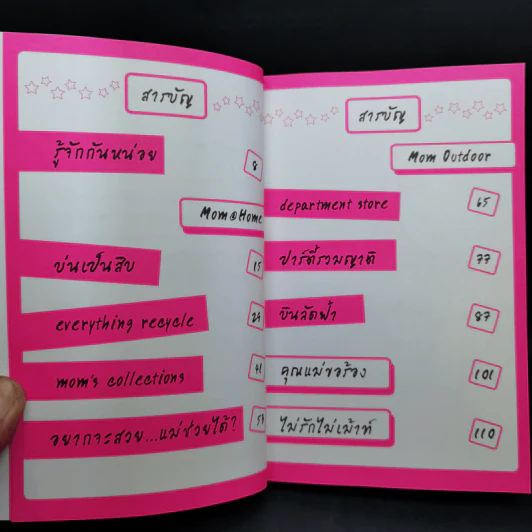 สารบัญ
รู้จักกันหน่อย 8
Mom@Home
บ่นเป็นสิบ 15
everything recycle
mom's collections
อยากจะสวย...แม่ช่วยได้?
สารบัญ
Mom Outdoor
department store 65
ปาร์ตี้รวมญาติ 77
บินลัดฟ้า 87
คุณแม่ขอร้อง 101
ไม่รักไม่เม้าท์ 110